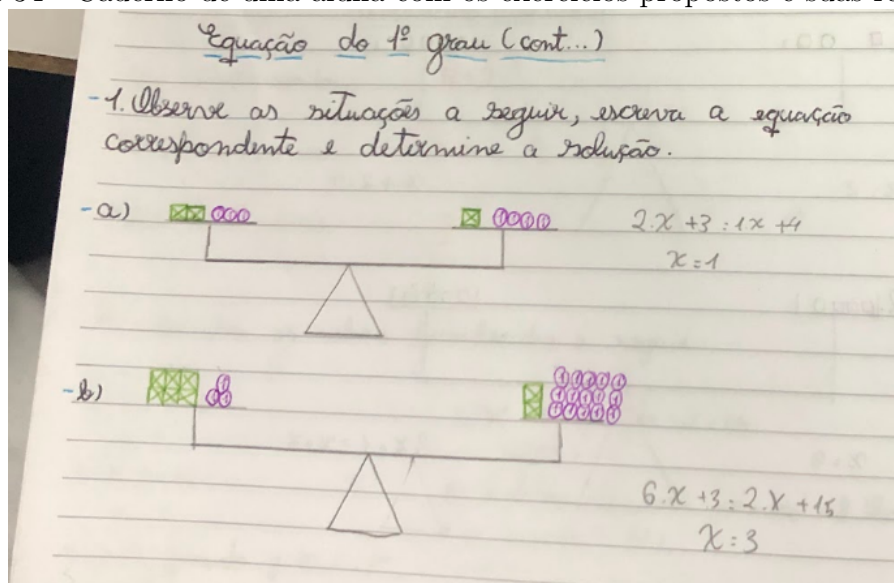 Equação do 1º grau (cont...)
-1. Observe as situações a seguir, escreva a equação
correspondente e determine a solução.
-a)
2.x +3 = 1x +4
x = 1
-b)
6.x +3 = 2.x +15
x = 3